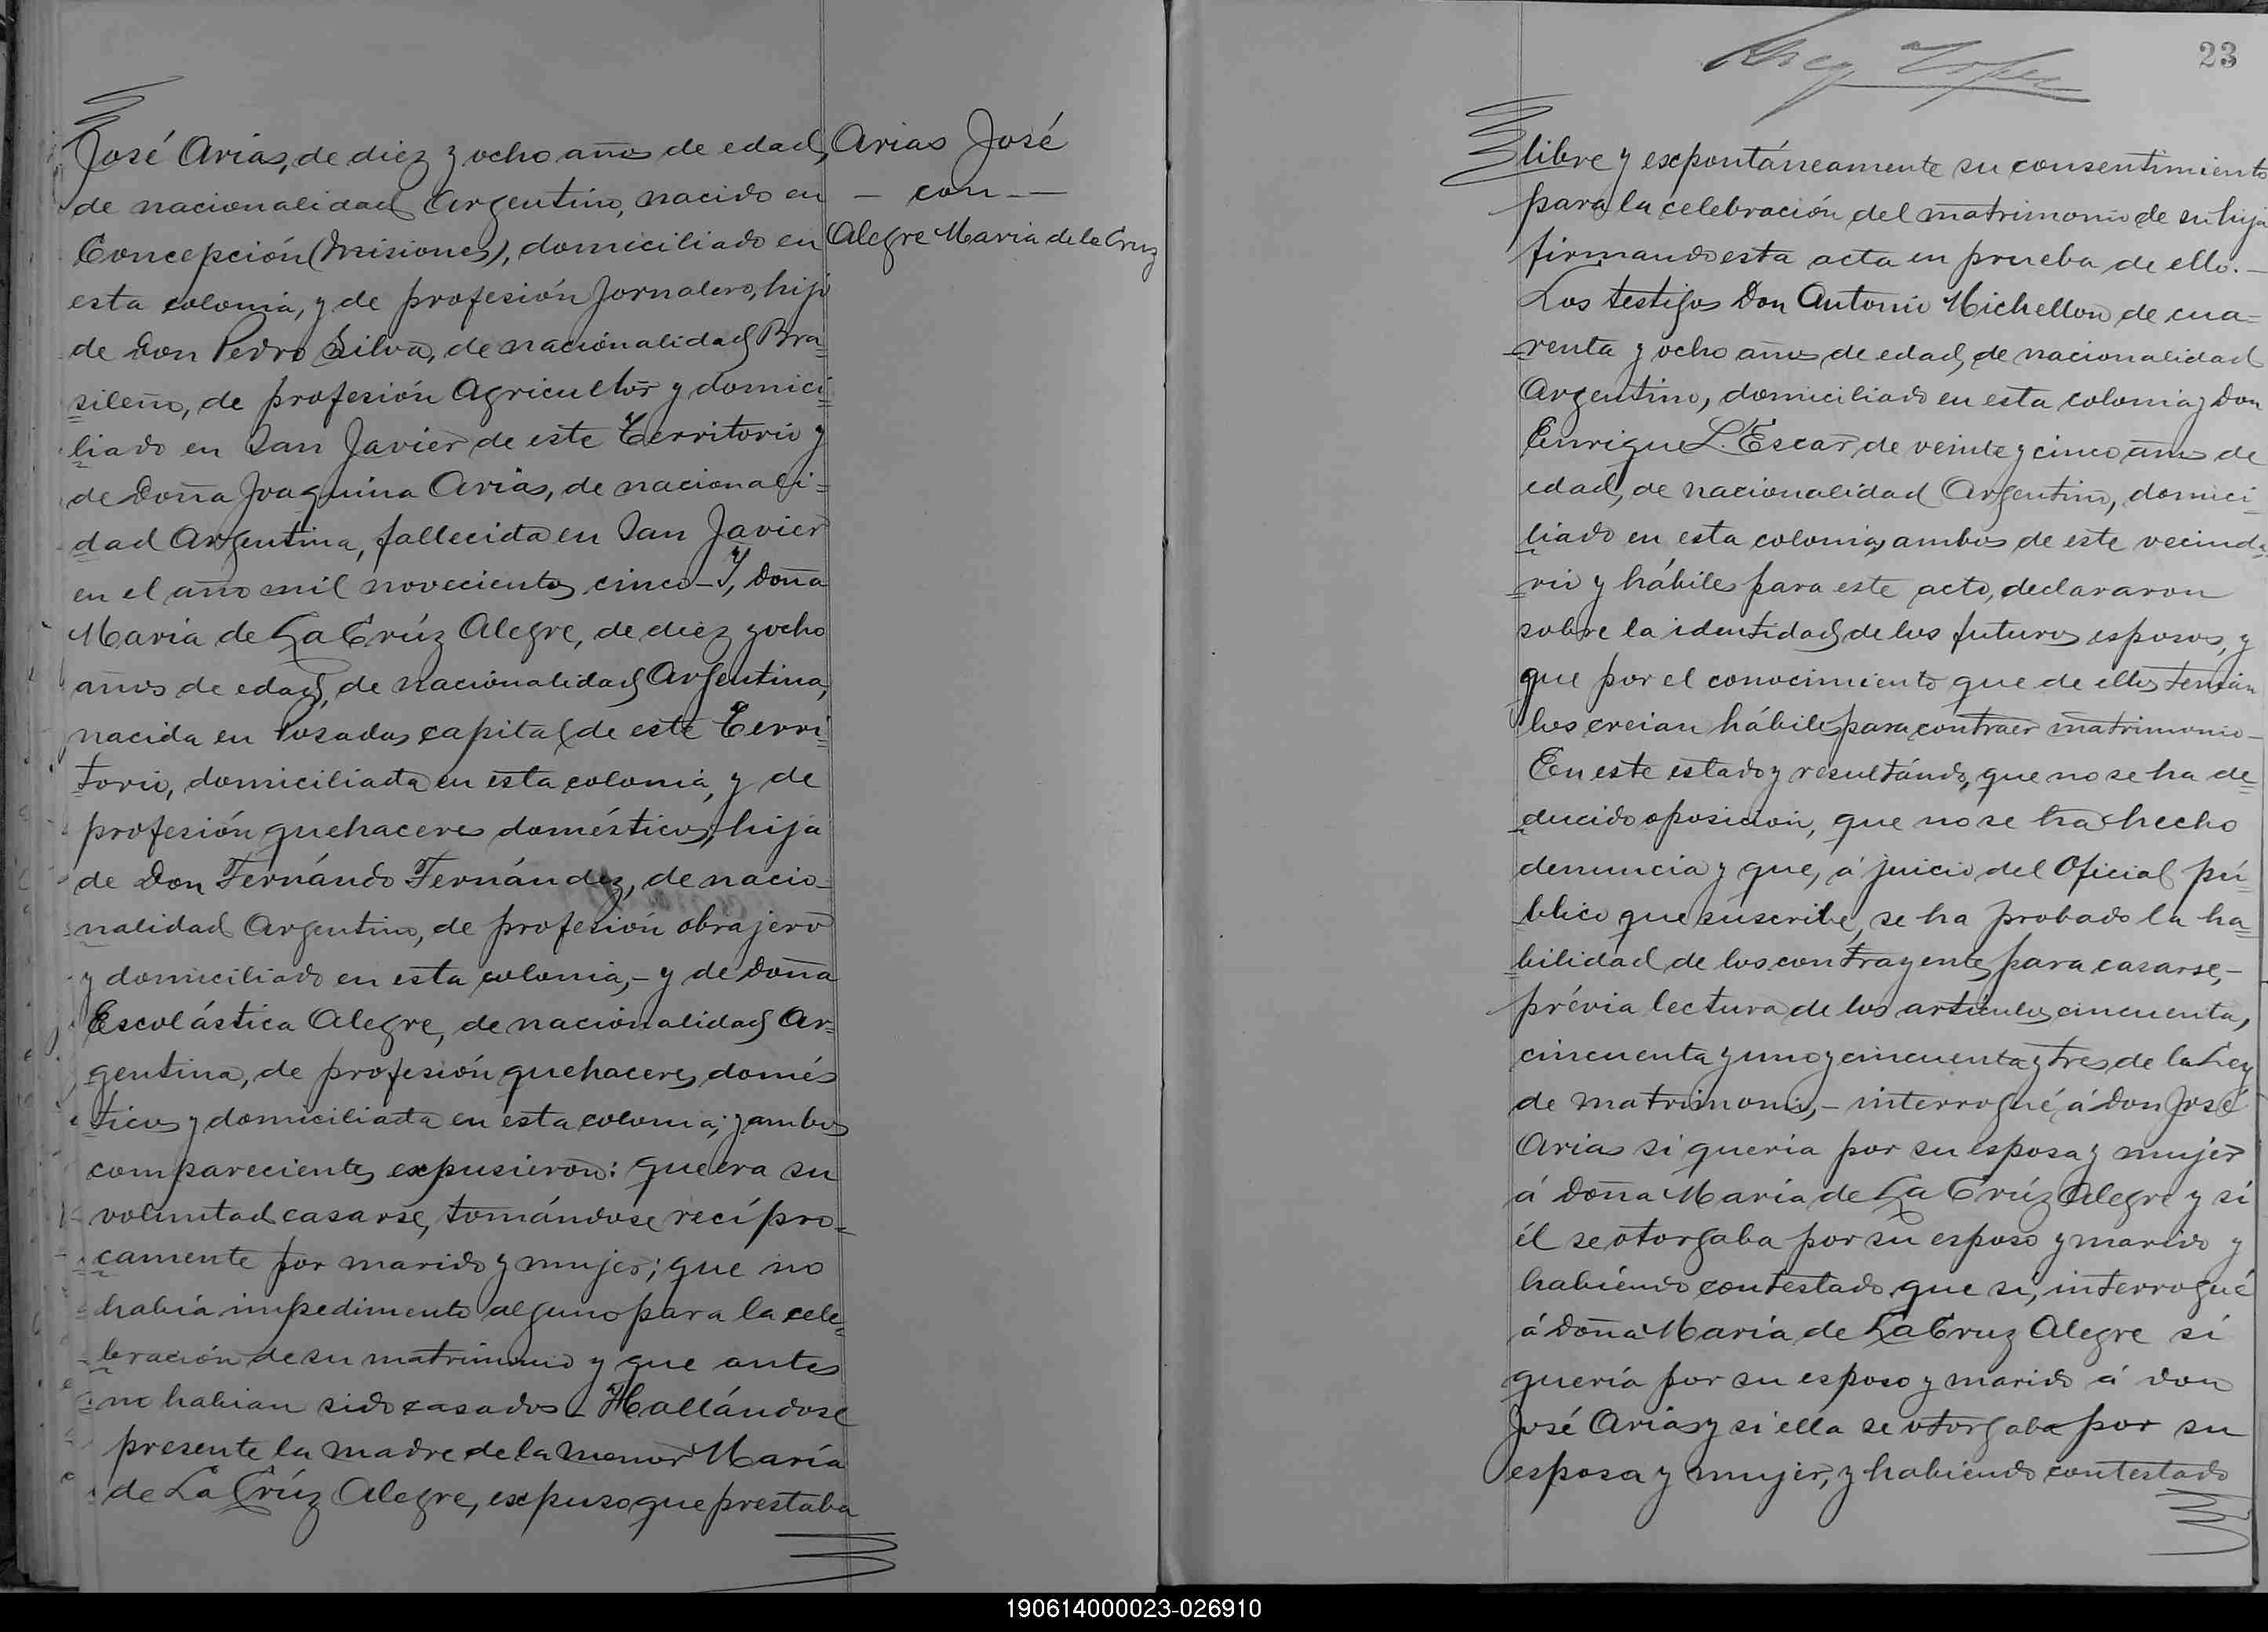 José Arias, de diez y ocho años de edad,
de nacionalidad Argentino, nacido en
Concepción (Misiones), domiciliado en
esta colonia, y de profesión Jornalero, hijo
de Don Pedro Silva, de nacionalidad Bra=
sileño, de profesión Agricultor y domici=
liado en San Javier de este Territorio y
de Doña Joaquina Arias, de nacionali=
dad Argentina, fallecida en San Javier
en el año mil novecientos cinco - Y, Doña
María de La Crúz Alegre, de diez y ocho
años de edad, de nacionalidad Argentina,
nacida en Posadas capital de este Terri=
torio, domiciliada en esta colonia, y de
profesión quehaceres domésticos, hija
de Don Fernándo Fernández, de nacio=
nalidad Argentino, de profesión obrajero
y domiciliado en esta colonia, - y de Doña
Escolástica Alegre, de nacionalidad Ar=
gentina, de profesión quehaceres domés
ticos y domiciliada en esta colonia; y ambos
comparecientes expusieron: que era su
voluntad casarse, tomándose recípro=
camente por marido y mujer; que no
había impedimento alguno para la cele=
bración de su matrimonio y que antes
no habian sido casados - Hallándose
presente la madre de la menor María
de La Crúz Alegre, expuso que prestaba
Arias José
- con -
Alegre Maria de la Cruz
23
libre y expontáneamente su consentimiento
para la celebración del matrimonio de su hija
firmando esta acta en prueba de ello. -
Los testigos Don Antonio Michellon de cua=
renta y ocho años de edad, de nacionalidad
Argentino, domiciliado en esta colonia y Don
Enrique L'Escar de veinte y cinco años de
edad, de nacionalidad Argentino, domici=
liado en esta colonia, ambos de este vecinda=
rio y hábiles para este acto, declararon
sobre la identidad de los futuros esposos, y
que por el conocimiento que de ellos tenían
los creian hábiles para contraer matrimonio -
En este estado y resultándo, que no se ha de=
ducido oposición, que no se ha hecho
denuncia y que, á juicio del Oficial pú=
blico que suscribe, se ha probado la ha=
bilidad de los contrayentes para casarse, -
prévia lectura de los artículos cincuenta,
cincuenta y uno y cincuenta y tres de la Ley
de matrimonio, - interrogué, á Don José
Arias si quería por su esposa y mujer
á Doña María de La Crúz Alegre y si
él se otorgaba por su esposo y marido y
habiéndo contestado que si, interrogué
á Doña María de La Cruz Alegre si
quería por su esposo y marido á Don
José Arias y si ella se otorgaba por su
esposa y mujer, y habiendo contestado
190614000023-026910